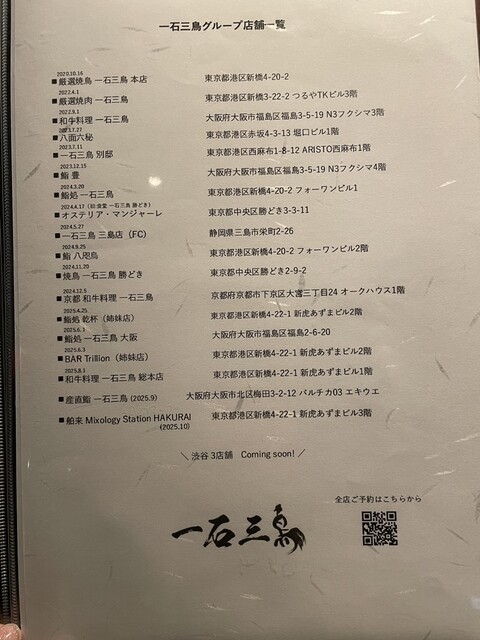 一石三鳥グループ店舗一覧
2020.10.16
■厳選焼鳥 一石三鳥 本店 東京都港区新橋4-20-2
2022.4.1
■厳選焼肉 一石三鳥 東京都港区新橋3-22-2 つるやTKビル3階
2022.9.1
■和牛料理 一石三鳥 大阪府大阪市福島区福島3-5-19 N3フクシマ3階
2023.7.27
■八面六秘 東京都港区赤坂4-3-13 堀口ビル1階
2023.7.11
■一石三鳥 別邸 東京都港区西麻布1-8-12 ARISTO西麻布1階
2023.12.15
■鮨 豊 大阪府大阪市福島区福島3-5-19 N3フクシマ4階
2024.3.20
■鮨処 一石三鳥 東京都港区新橋4-20-2 フォーワンビル1
2024.4.17（旧:食堂 一石三鳥 勝どき）
■オステリア・マンジャーレ 東京都中央区勝どき3-3-11
2024.5.27
■一石三鳥 三島店（FC） 静岡県三島市栄町2-26
2024.9.25
■鮨 八咫烏 東京都港区新橋4-20-2 フォーワンビル2階
2024.11.20
■焼鳥 一石三鳥 勝どき 東京都中央区勝どき2-9-2
2024.12.5
■京都 和牛料理 一石三鳥 京都府京都市下京区大宮三丁目24 オークハウス1階
2025.4.25
■鮨処 乾杯（姉妹店） 東京都港区新橋4-22-1 新虎あずまビル2階
2025.6.1
■鮨処 一石三鳥 大阪 大阪府大阪市福島区福島2-6-20
2025.6.3
■BAR Trillion（姉妹店） 東京都港区新橋4-22-1 新虎あずまビル2階
2025.8.1
■和牛料理 一石三鳥 総本店 東京都港区新橋4-22-1 新虎あずまビル1階
■産直鮨 一石三鳥 (2025.9) 大阪府大阪市北区梅田3-2-12 バルチカ03 エキウエ
■舶来 Mixology Station HAKURAI 東京都港区新橋4-22-1 新虎あずまビル3階
(2025.10)
＼ 渋谷 3店舗 Coming soon! ／
全店ご予約はこちらから
一石三鳥